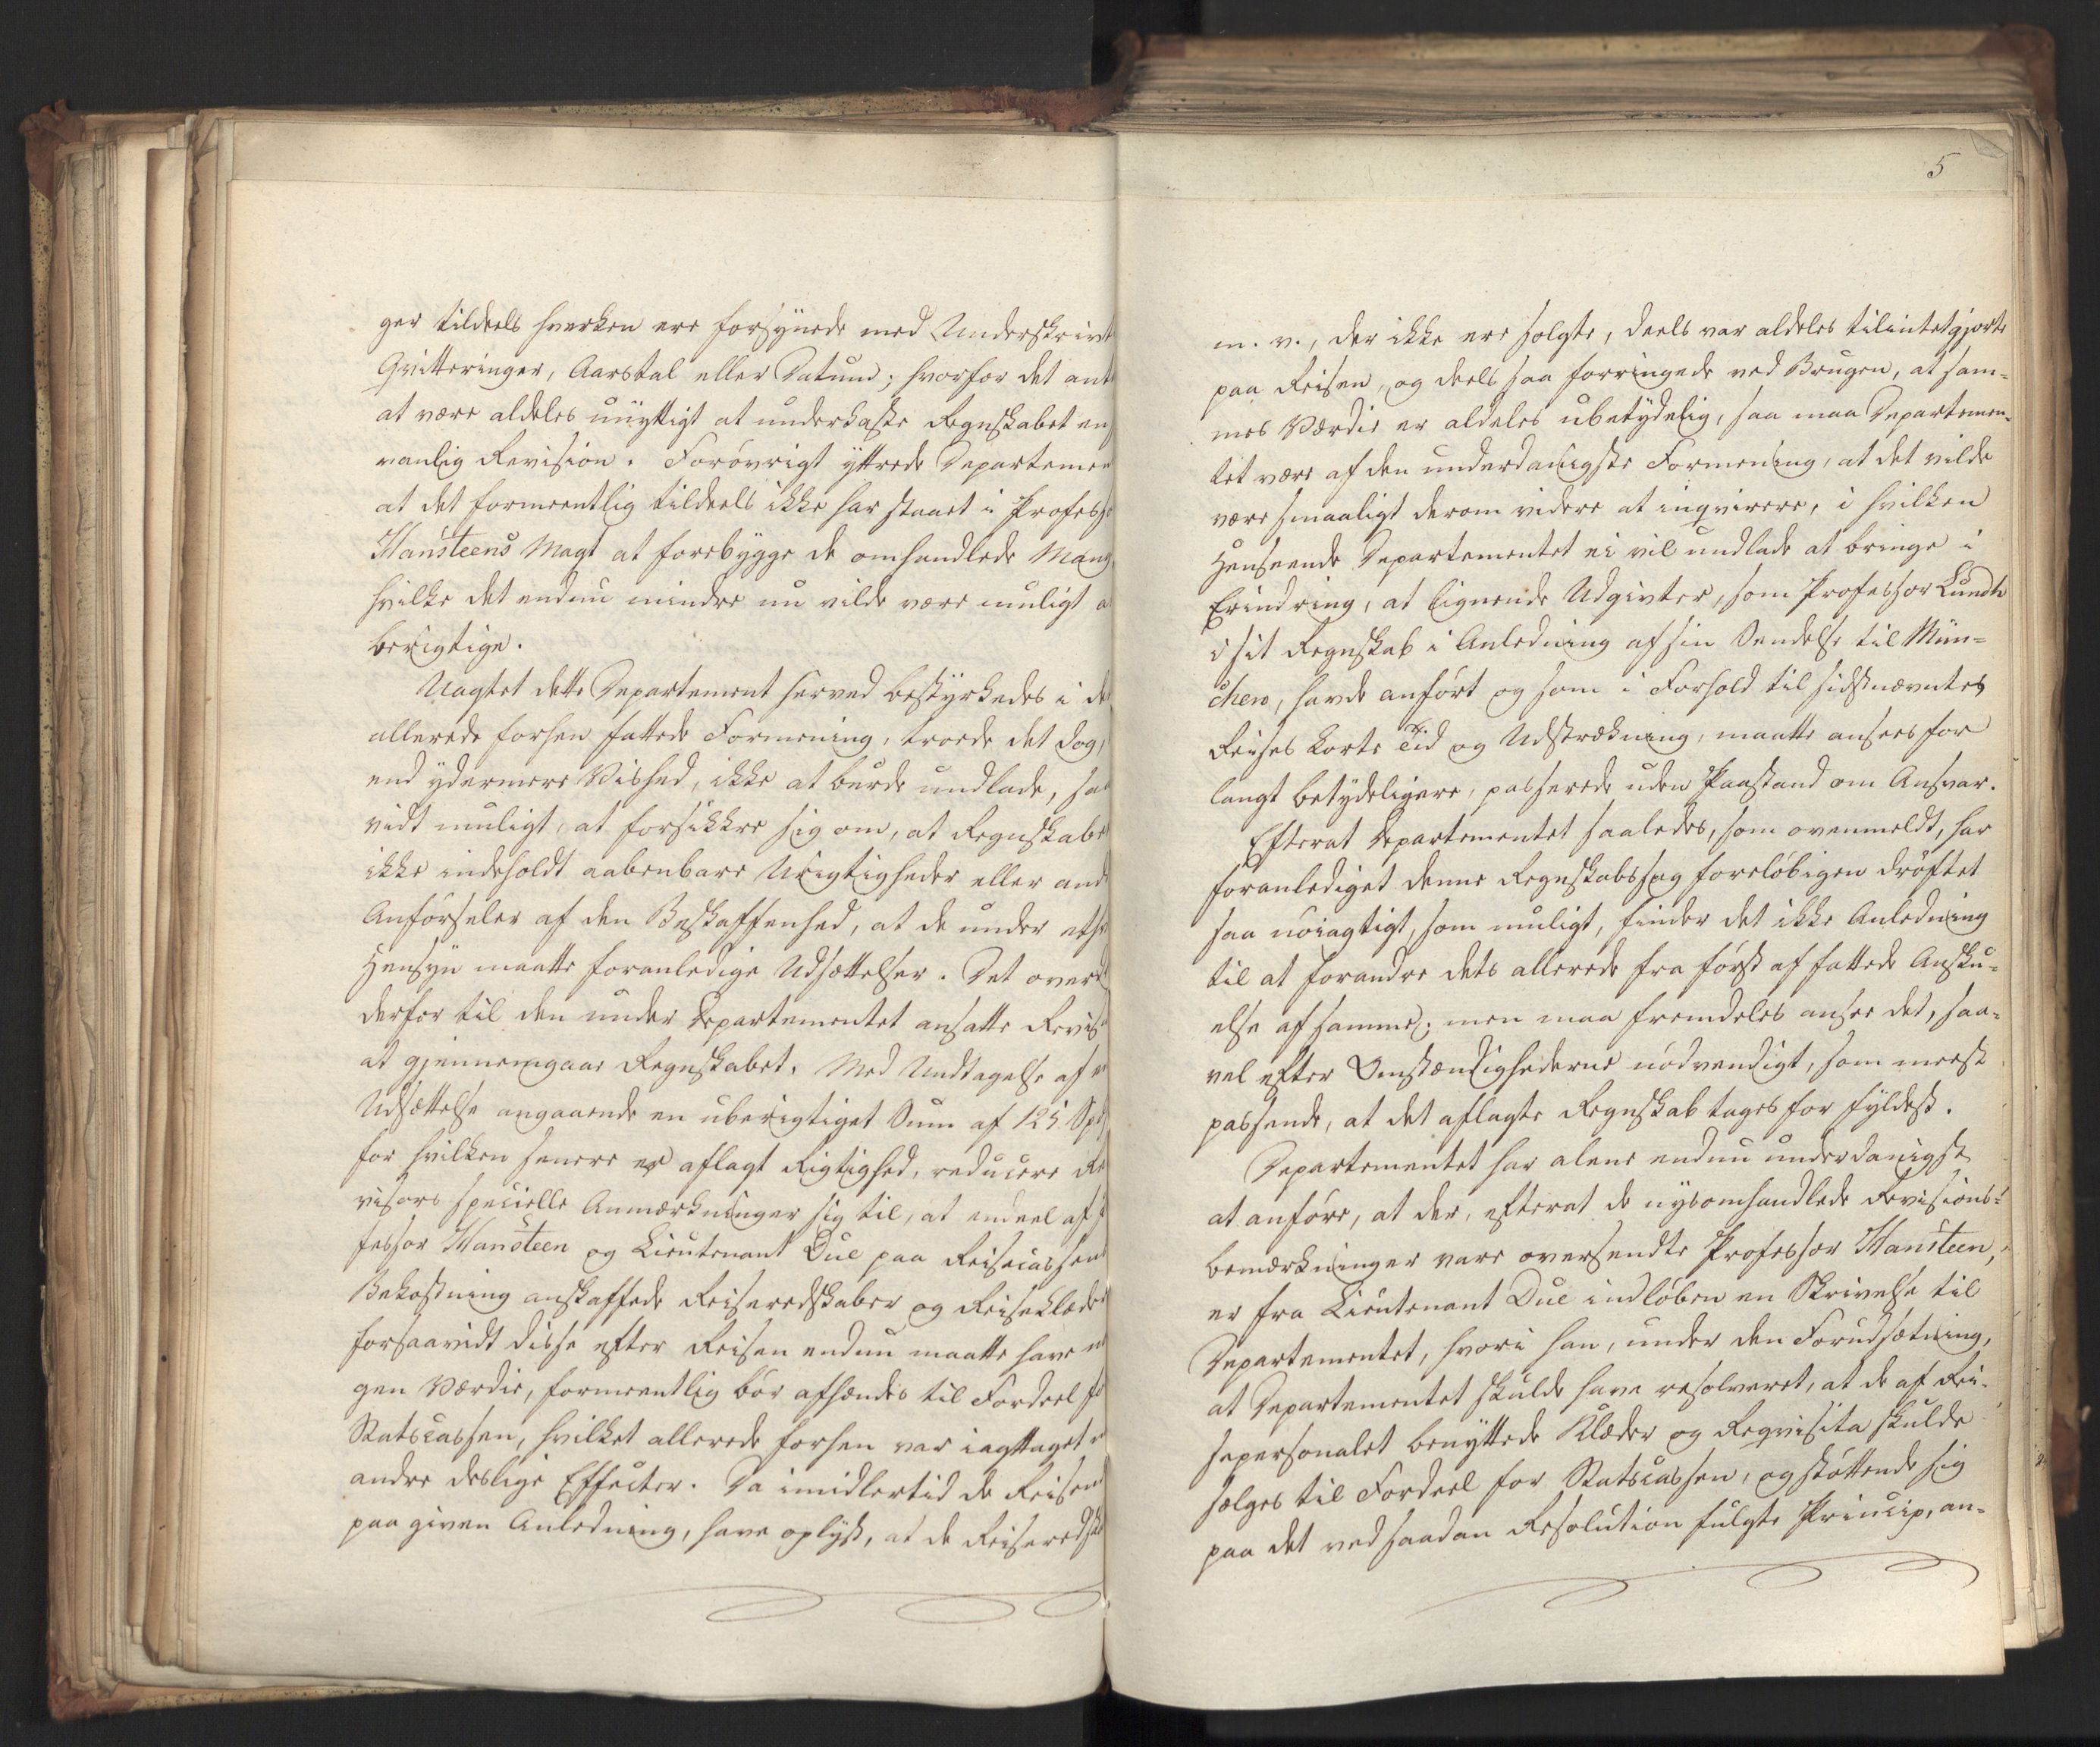 ger tildeels hverken ere forsynede med Underskrivt
Qvitteringer, Aarstal eller Datum; hvorfor det ant
at være aldeles unyttigt at underkaste Regnskabet en
vanlig Revision. Forøvrigt yttrede Departemen
at det formeentlig tildeels ikke har staaet i Profess
Hansteens Magt at forebygge de omhandlede Mang
hvilke det endnu mindre nu vilde være muligt a
berigtige.
Uagtet dette Departement herved bestyrkedes i de
allerede forhen fattede Formening, troede det dog,
end ydermere Vished, ikke at burde undlade, saa
vidt muligt, at forsikkre sig om, at Regnskabet
ikke indeholdt aabenbare Urigtigheder eller and
Anførseler af den Beskaffenhed, at de under eth
Hensyn maatte foranledige Udsættelser. Det overd
derfor til den under Departementet ansatte Revis
at gjennemgaae Regnskabet. Med Undtagelse af en
Udsættelse angaaende en uberigtiget Sum af 125 Spd
for hvilken senere er aflagt Rigtighed, reducere Re
visors specielle Anmærkninger sig til, at endeel af
fessor Hansteen og Lieutenant Due paa Reisecassens
Bekostning anskaffede Reiseredskaber og Reiseklæder
forsaavidt disse efter Reisen endnu maatte have no
gen Værdie, formeentlig bør afhændes til Fordeel fo
Statscassen, hvilket allerede forhen var iagttaget
andre deslige Effecter. Da imidlertid de Reisen
paa given Anledning, have oplyst, at de Reiseredska
5
m. v., der ikke ere solgte, deels var aldeles tilintetgjorte
paa Reisen, og deels saa forringede ved Brugen, at sam-
mes Værdie er aldeles ubetydelig, saa maa Departemen-
tet være af den underdanigste Formening, at det vilde
være smaaligt derom videre at inqvirere, i hvilken
Henseende Departementet ei vil undlade at bringe i
Erindring, at lignende Udgivter, som Professor Lundh
i sit Regnskab i Anledning af sin Sendelse til Mün-
chen, havde anført og som i Forhold til sidstnævntes
Reises korte Tid og Udstrækning, maatte ansees for
langt betydeligere, passerede uden Paastand om Ansvar.
Efterat Departementet saaledes, som ovenmeldt, har
foranlediget denne Regnskabssag foreløbigen drøftet
saa nøiagtigt, som muligt, finder det ikke Anledning
til at forandre dets allerede fra først af fattede Ansku-
else af samme; men maa fremdeles ansee det, saa-
vel efter Omstændighederne nødvendigt, som meest
passende, at det aflagte Regnskab tages for fyldest.
Departementet har alene endnu underdanigst
at anføre, at der, efterat de nysomhandlede Revisions-
bemærkninger vare oversendte Professor Hansteen,
er fra Lieutenant Due indløben en Skrivelse til
Departementet, hvori han, under den Forudsætning,
at Departementet skulde have resolveret, at de af Rei-
sepersonalet benyttede Klæder og Reqvisita skulde
sælges til Fordeel for Statscassen, og støttende sig
paa det ved saadan Resolution fulgte Princip, an-